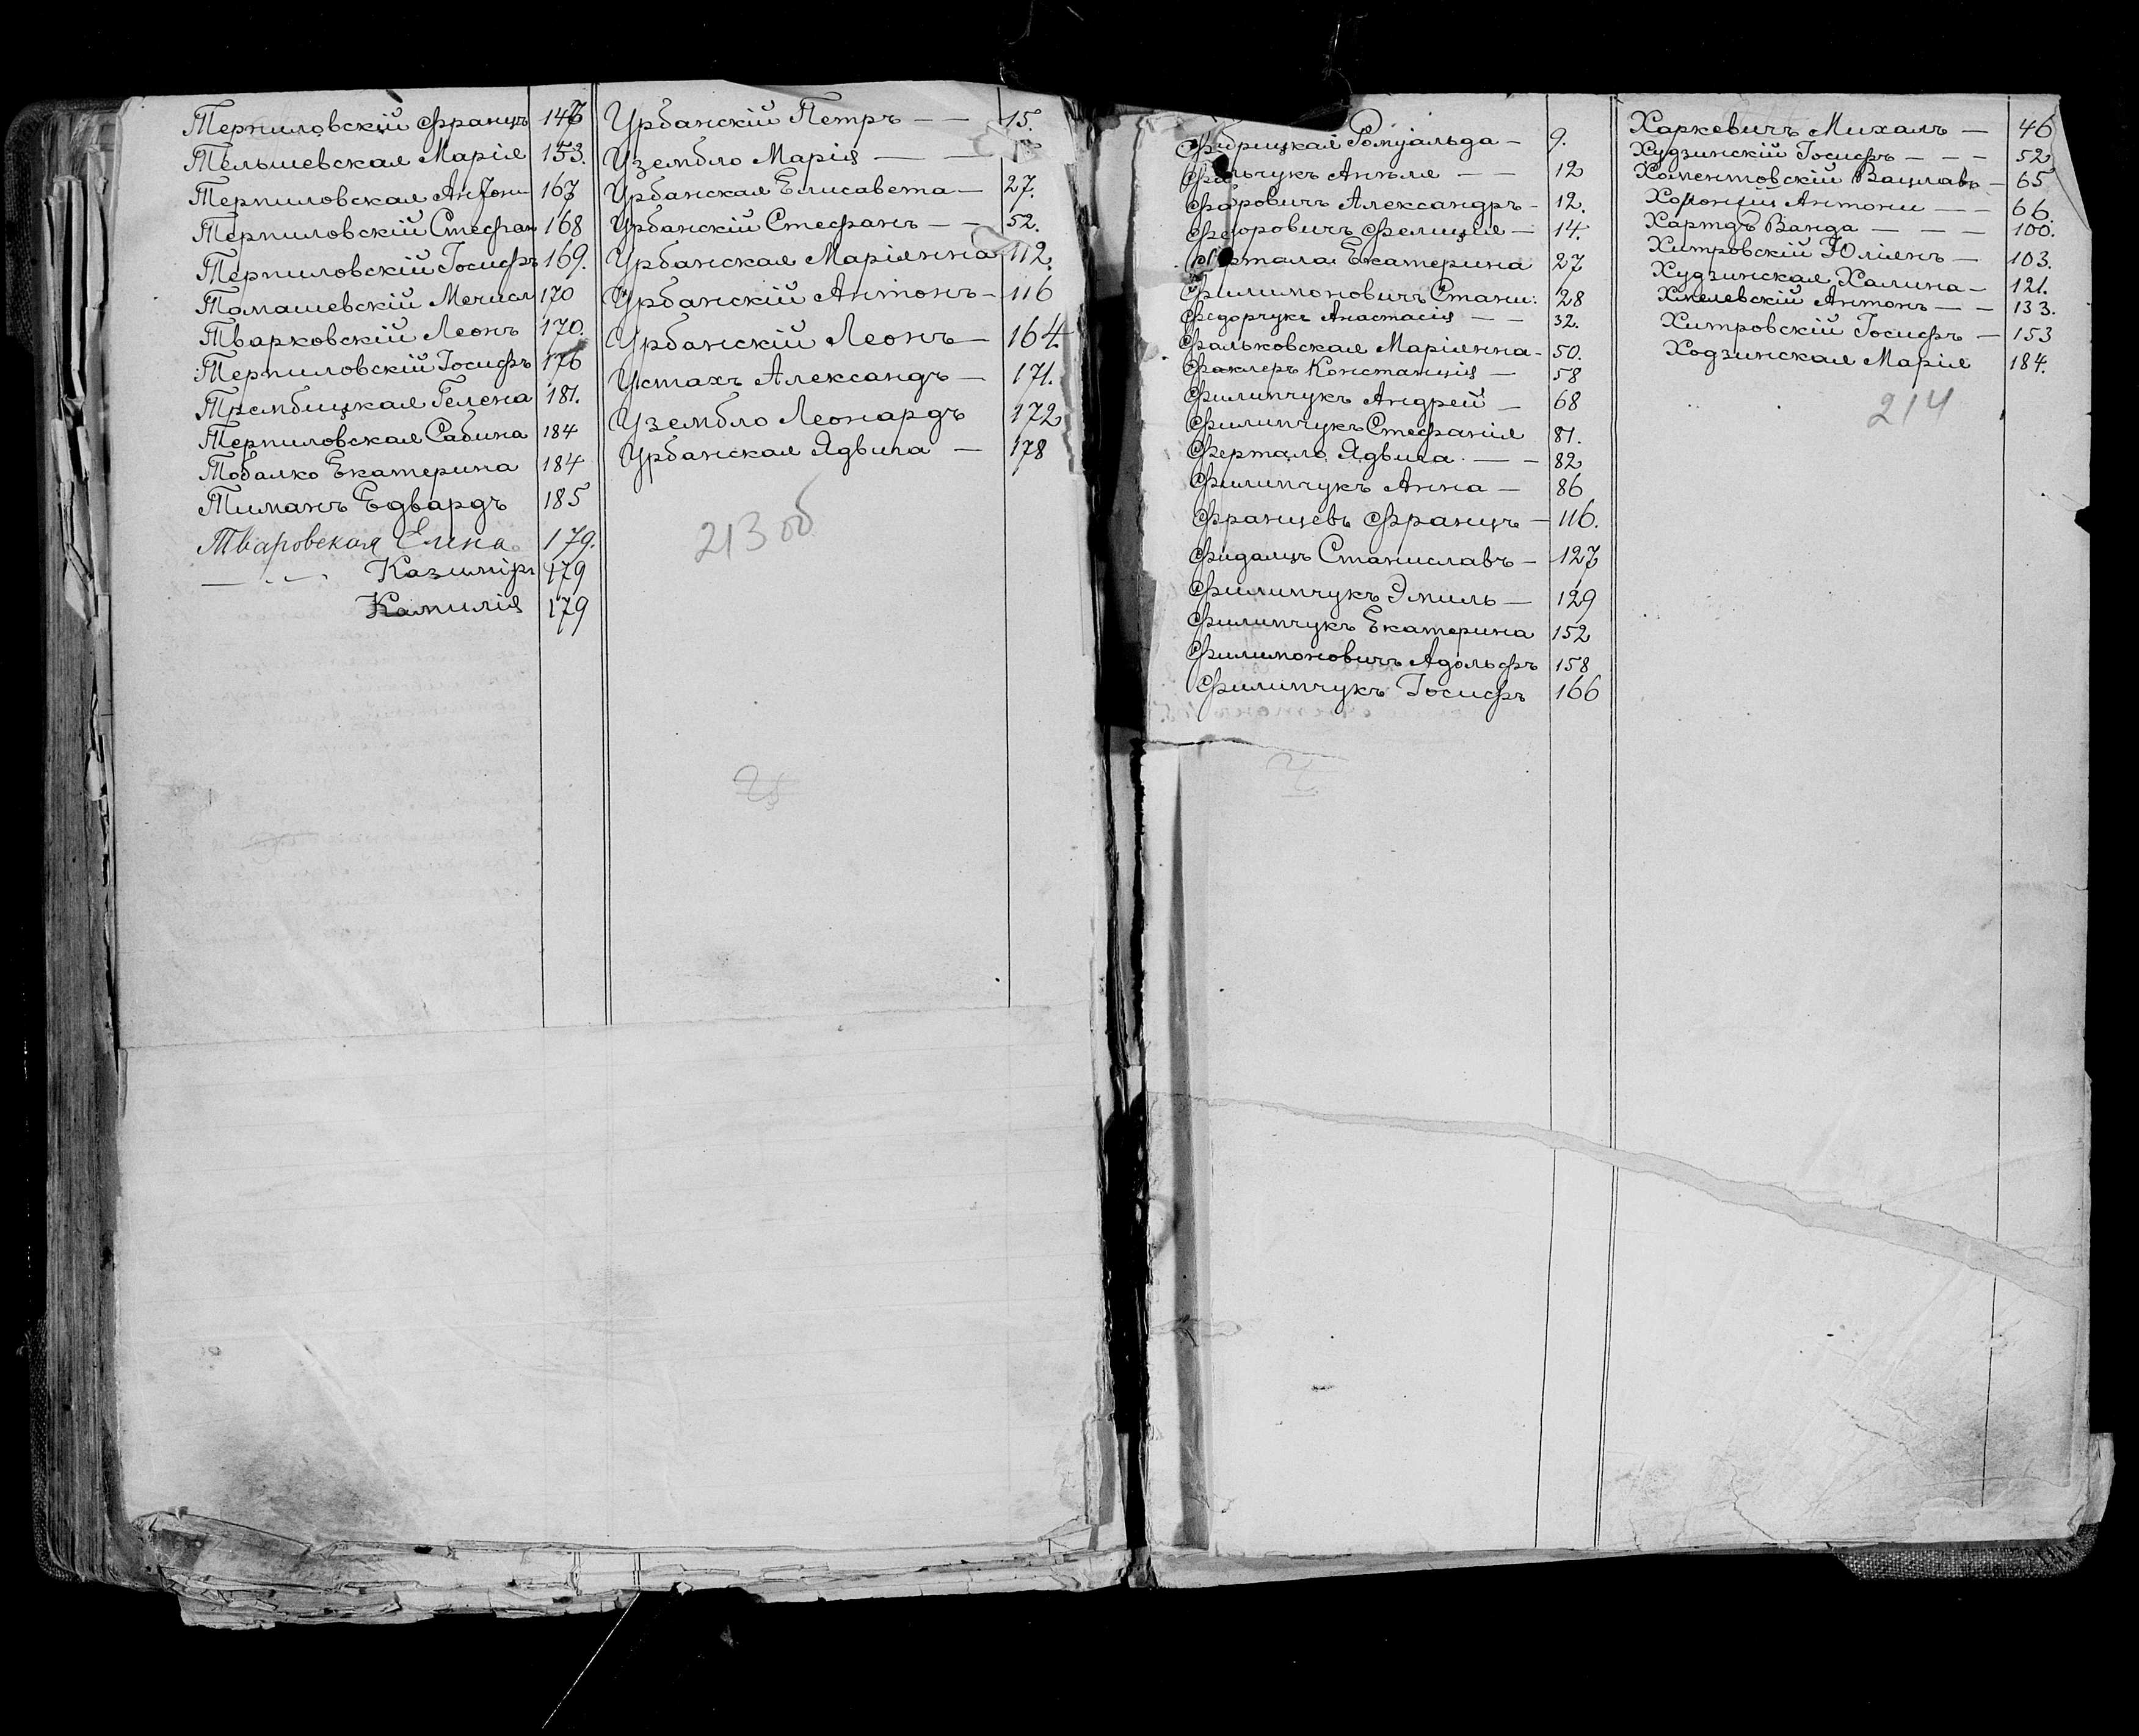 Терпиловскій Францъ 147
Тельшевская Марія 153.
Терпиловская Антони 167
Терпиловскій Стефан 168
Терпиловскій Іосифъ 169.
Томашевскій Мечисл 170
Тварковскій Леонъ 170.
Терпиловскій Іосифъ 176
Трембицкая Гелена 181.
Терпиловская Сабина 184
Тобалко Екатерина 184
Тиманъ Едвардъ 185
Тваровская Елена 179.
— „ — Казиміръ 179
Камилія 179
Урбанскій Петръ — — 15.
Узембло Марія — —
Урбанская Елисавета — 27.
Урбанскій Стефанъ — — 52.
Урбанская Маріянна 112.
Урбанскій Антонъ — 116
Урбанскій Леонъ — 164.
Устахъ Александъ — 171.
Узембло Леонардъ 172
Урбанская Ядвига — 178
213 об
Ромуальда — 9.
Анеля — — 12
Александръ — 12.
Федоровичъ Фелиція — 14.
Екатерина 27
Филимоновичъ Стани: 28
Федорчукъ Анастасія — — 32.
Фальковская Маріянна — 50.
Факлеръ Констанція — 58
Филипчукъ Андрей — 68
Филипчукъ Стефанія 81.
Фертало Ядвига — — 82
Филипчукъ Анна — 86
Францевъ Францъ — 116.
Фидалцъ Станиславъ — 127
Филипчукъ Эмиль — 129
Филипчукъ Екатерина 152
Филимоновичъ Адольфъ 158
Филипчукъ Іосифъ 166
Харкевичъ Михалъ — 46
Худзинскій Іосифъ — — — 52
Хоментовскій Вацлавъ — 65
Антони — — 66.
Хартдъ Ванда — — — 100.
Хитровскій Юліянъ — 103.
Худзинская Халина — 121.
Хмелевскій Антонъ — — 133.
Хитровскій Іосифъ — 153
Ходзинская Марія 184.
214